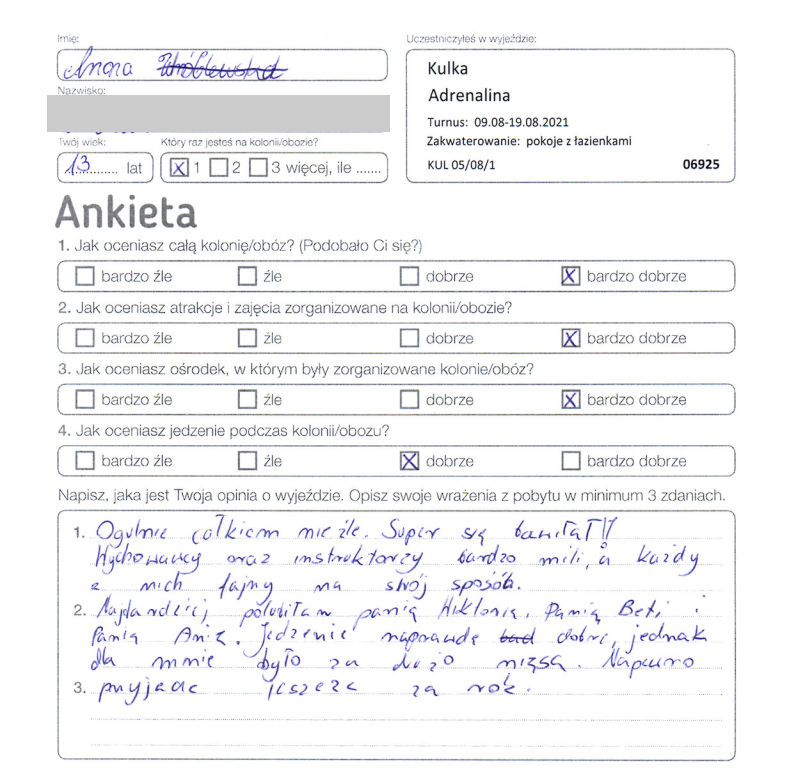 Imię:
Anna
Nazwisko:
Twój wiek:
13 lat
Który raz jesteś na kolonii/obozie?
X 1 2 3 więcej, ile .......
Uczestniczyłeś w wyjeździe:
Kulka
Adrenalina
Turnus: 09.08-19.08.2021
Zakwaterowanie: pokoje z łazienkami
KUL 05/08/1 06925
Ankieta
1. Jak oceniasz całą kolonię/obóz? (Podobało Ci się?)
bardzo źle źle dobrze X bardzo dobrze
2. Jak oceniasz atrakcje i zajęcia zorganizowane na kolonii/obozie?
bardzo źle źle dobrze X bardzo dobrze
3. Jak oceniasz ośrodek, w którym były zorganizowane kolonie/obóz?
bardzo źle źle dobrze X bardzo dobrze
4. Jak oceniasz jedzenie podczas kolonii/obozu?
bardzo źle źle X dobrze bardzo dobrze
Napisz, jaka jest Twoja opinia o wyjeździe. Opisz swoje wrażenia z pobytu w minimum 3 zdaniach.
1. Ogulnie całkiem nieźle. Super się bawiłam!!
Wychowawcy oraz instruktorzy bardzo mili, a każdy
z nich fajny na swój sposób.
2. Najbardziej polubiłam panią Wiktorię, Panią Beti i
Panią Anię. Jedzenie naprawdę dobre, jednak
dla mnie było za dużo mięsa. Napewno
3. przyjadę jeszcze za rok.